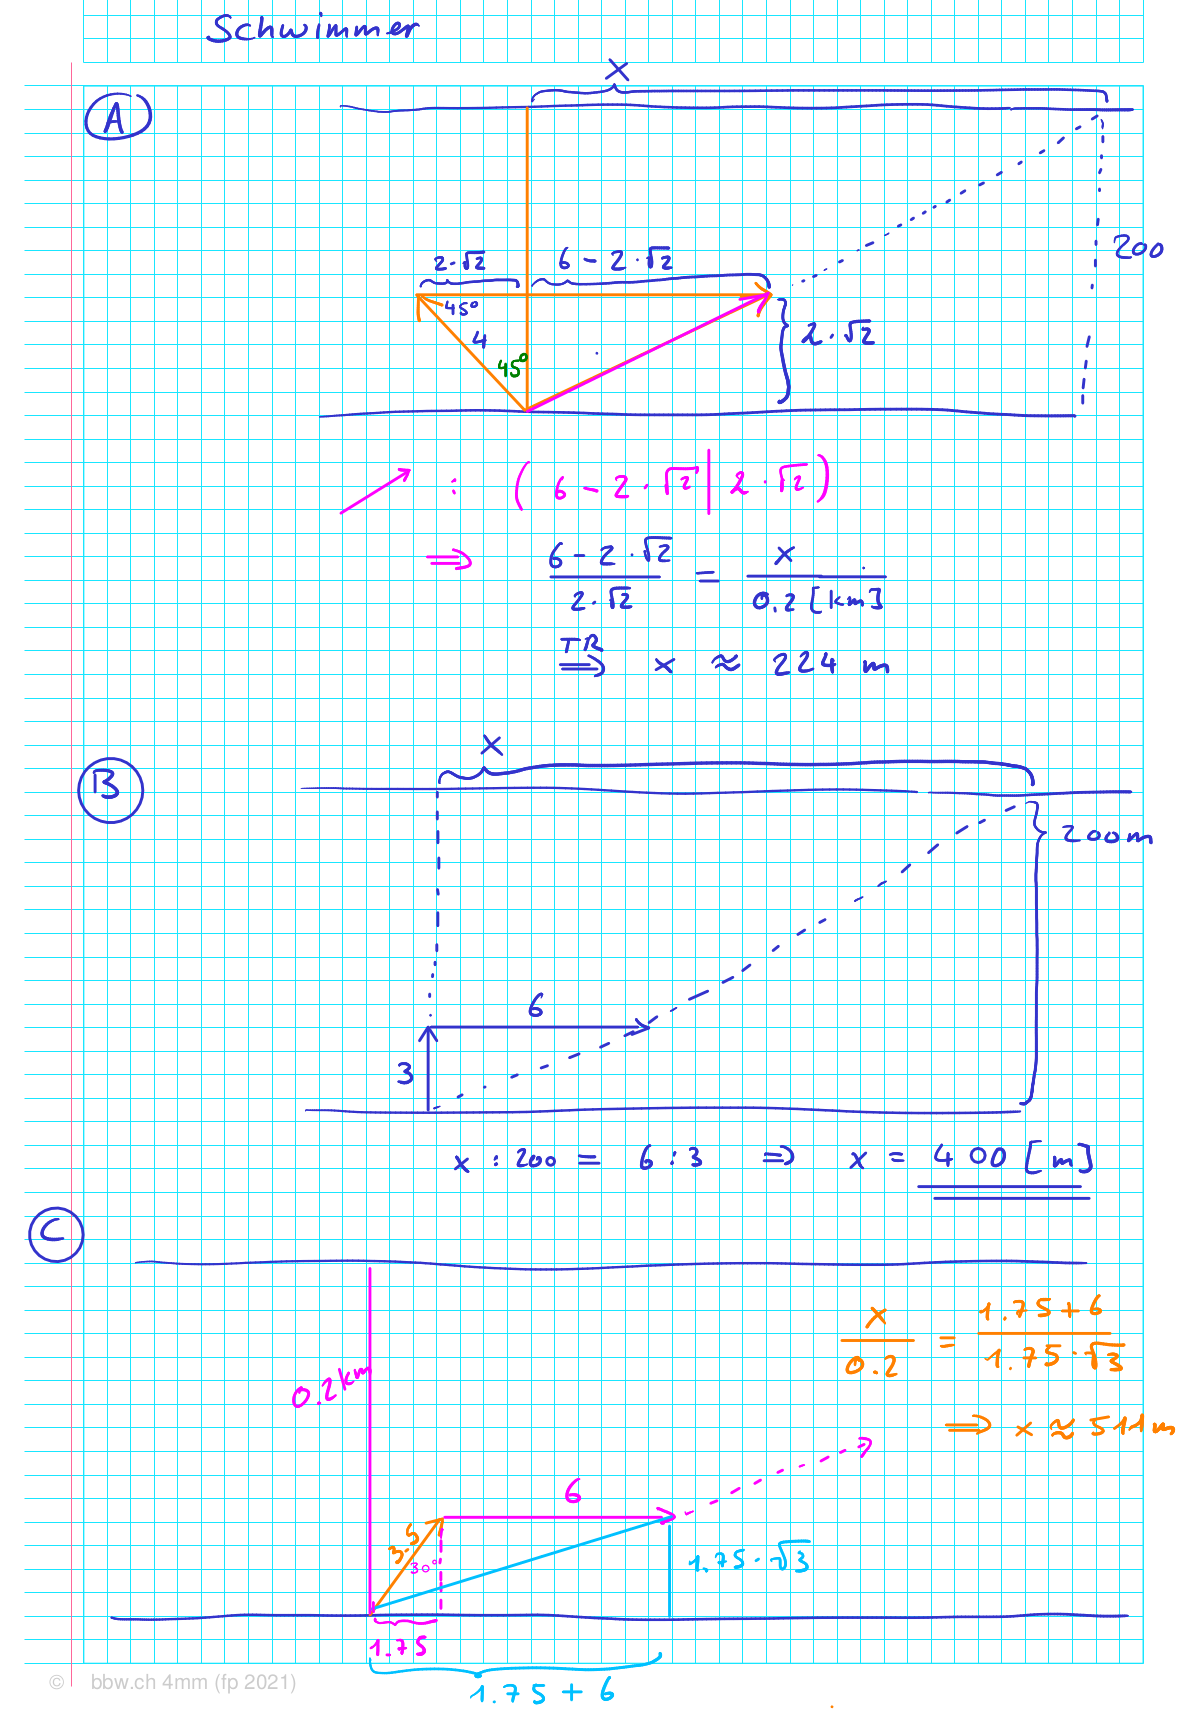 Schwimmer
A
x
200
2·√2
6 - 2·√2
45°
4
45°
2·√2
: ( 6 - 2·√2 | 2·√2 )
⇒ (6 - 2·√2)/(2·√2) = x/(0.2 [km])
TR
⇒ x ≈ 224 m
B
x
200m
6
3
x : 200 = 6 : 3 ⇒ x = 400 [m]
C
x/0.2 = (1.75 + 6)/(1.75·√3)
0.2 km
⇒ x ≈ 511 m
6
3.5
30°
1.75·√3
1.75
1.75 + 6
© bbw.ch 4mm (fp 2021)